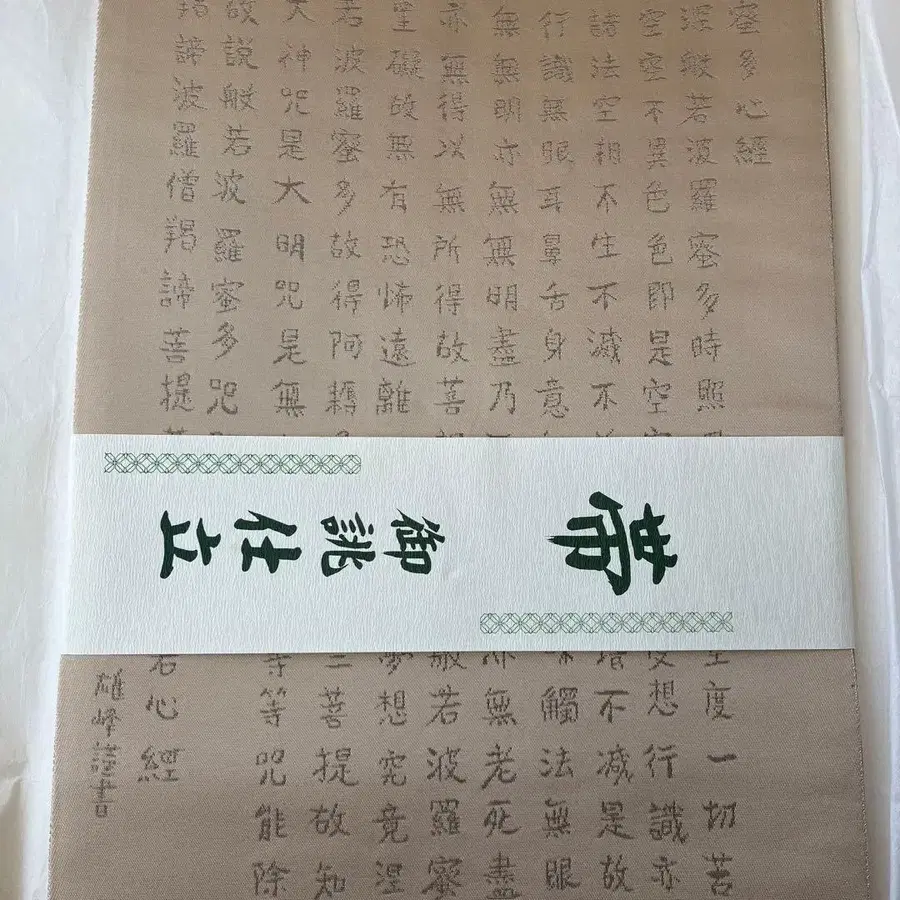 蜜多心經
深般若波羅蜜多時照
度一切苦
空空不異色色即是空空
受想行識亦
諸法空相不生不滅不
增不減是故
行識無眼耳鼻舌身意
味觸法無眼
無無明亦無無明盡乃
亦無老死盡
亦無得以無所得故菩
般若波羅蜜
罣礙故無有恐怖遠離
夢想究竟涅
若波羅蜜多故得阿耨
三菩提故知
大神呪是大明呪是無
等等呪能除
故説般若波羅蜜多呪
羯諦波羅僧羯諦菩提
若心經
雄峰謹書
帯
御誂仕立